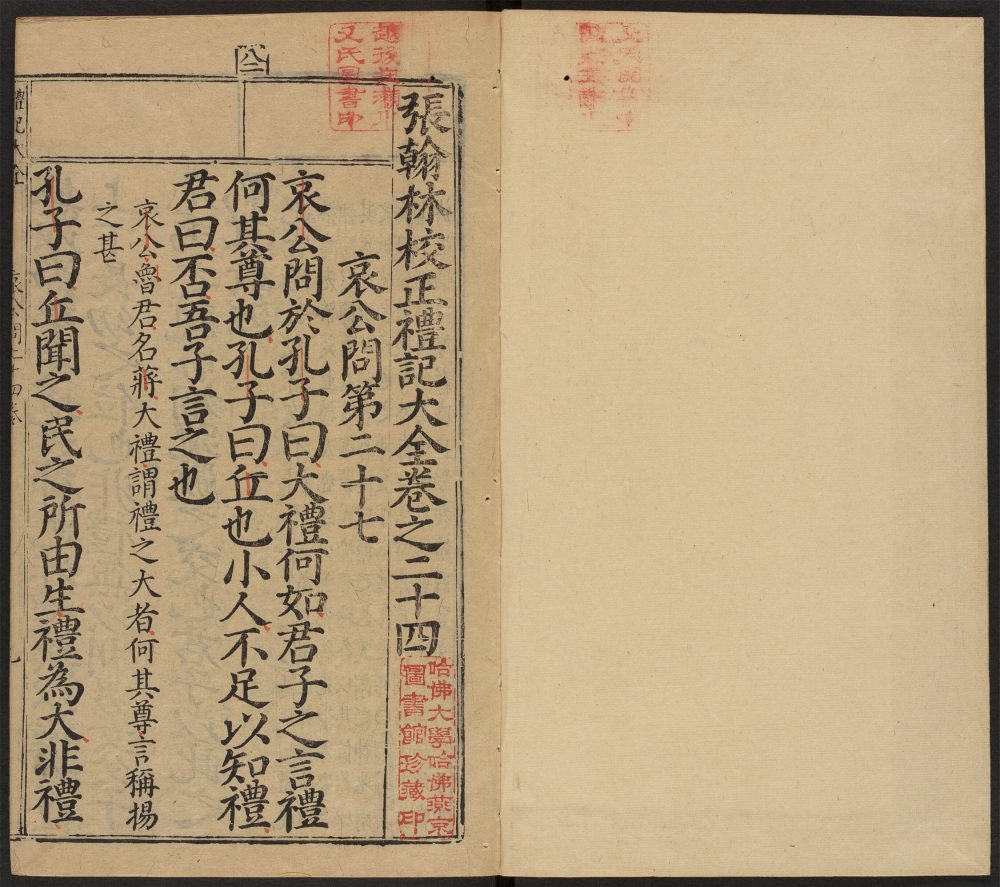 張翰林校正禮記大全卷之二十四
哀公問第二十七
哀公問於孔子曰大禮何如君子之言禮
何其尊也孔子曰丘也小人不足以知禮
君曰否吾子言之也
哀公魯君名蔣大禮謂禮之大者何其尊言稱揚
之甚
孔子曰丘聞之民之所由生禮為大非禮
禮記大全
哀公問二十四卷
八二
哈佛大學哈佛燕京
圖書館珍藏印
氏圖書印